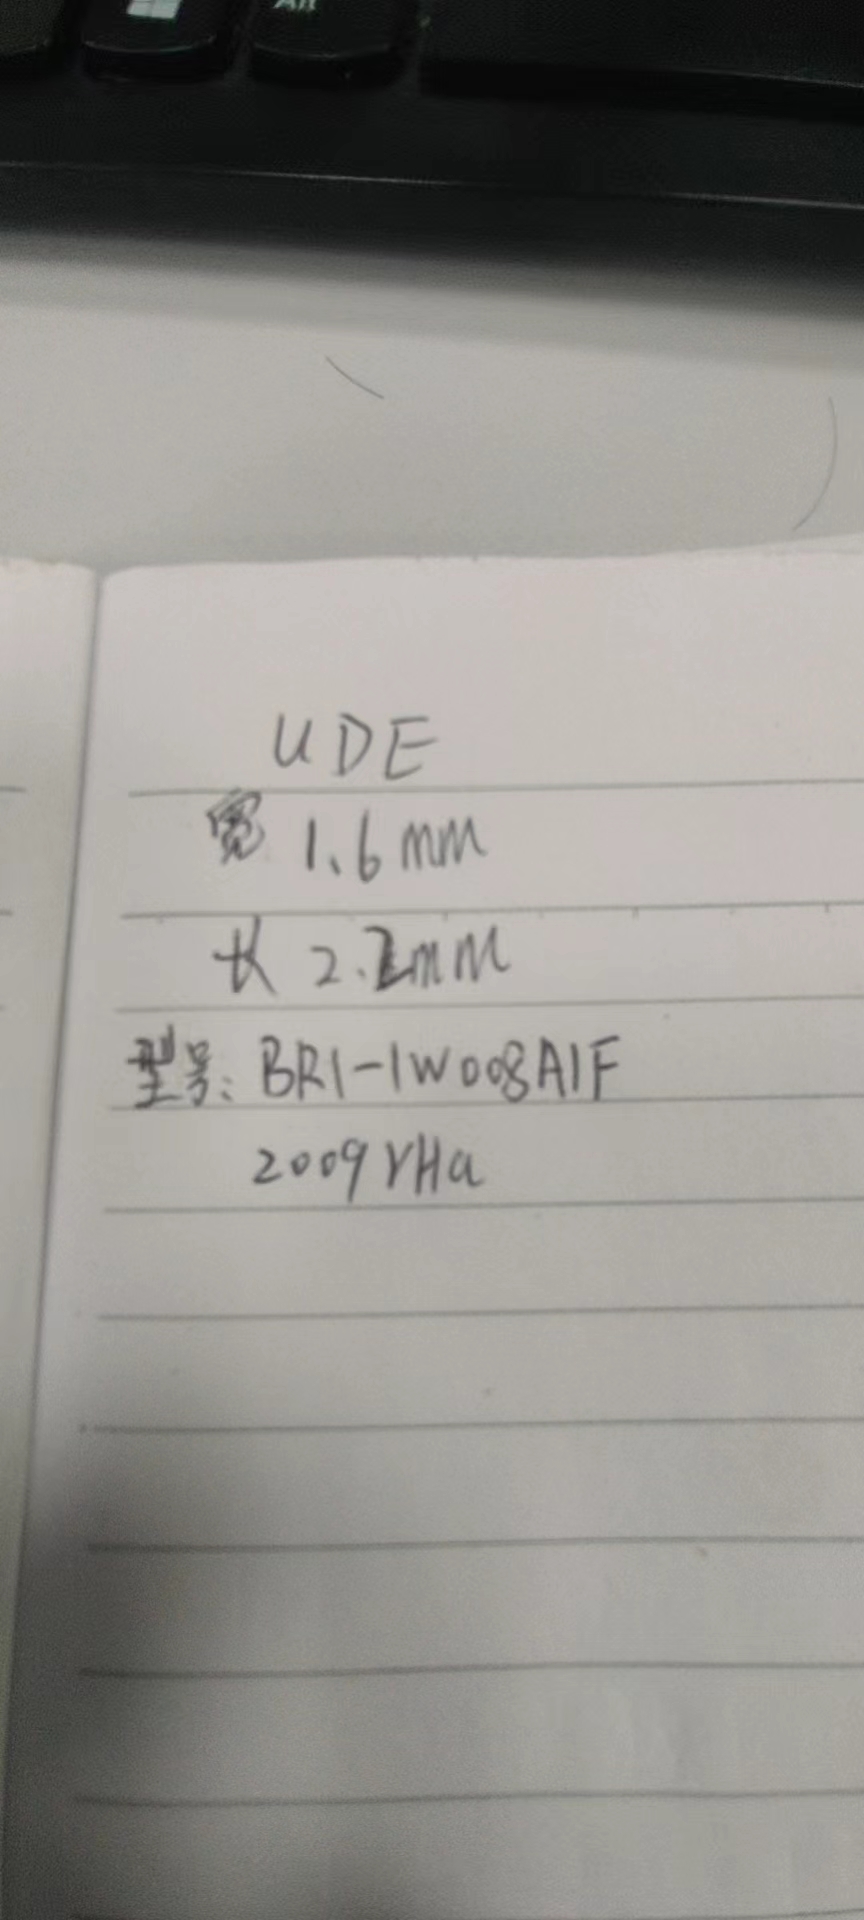 Alt
UDE
宽 1.6mm
长 2.2mm
型号: BR1-1W008A1F
2009YHa